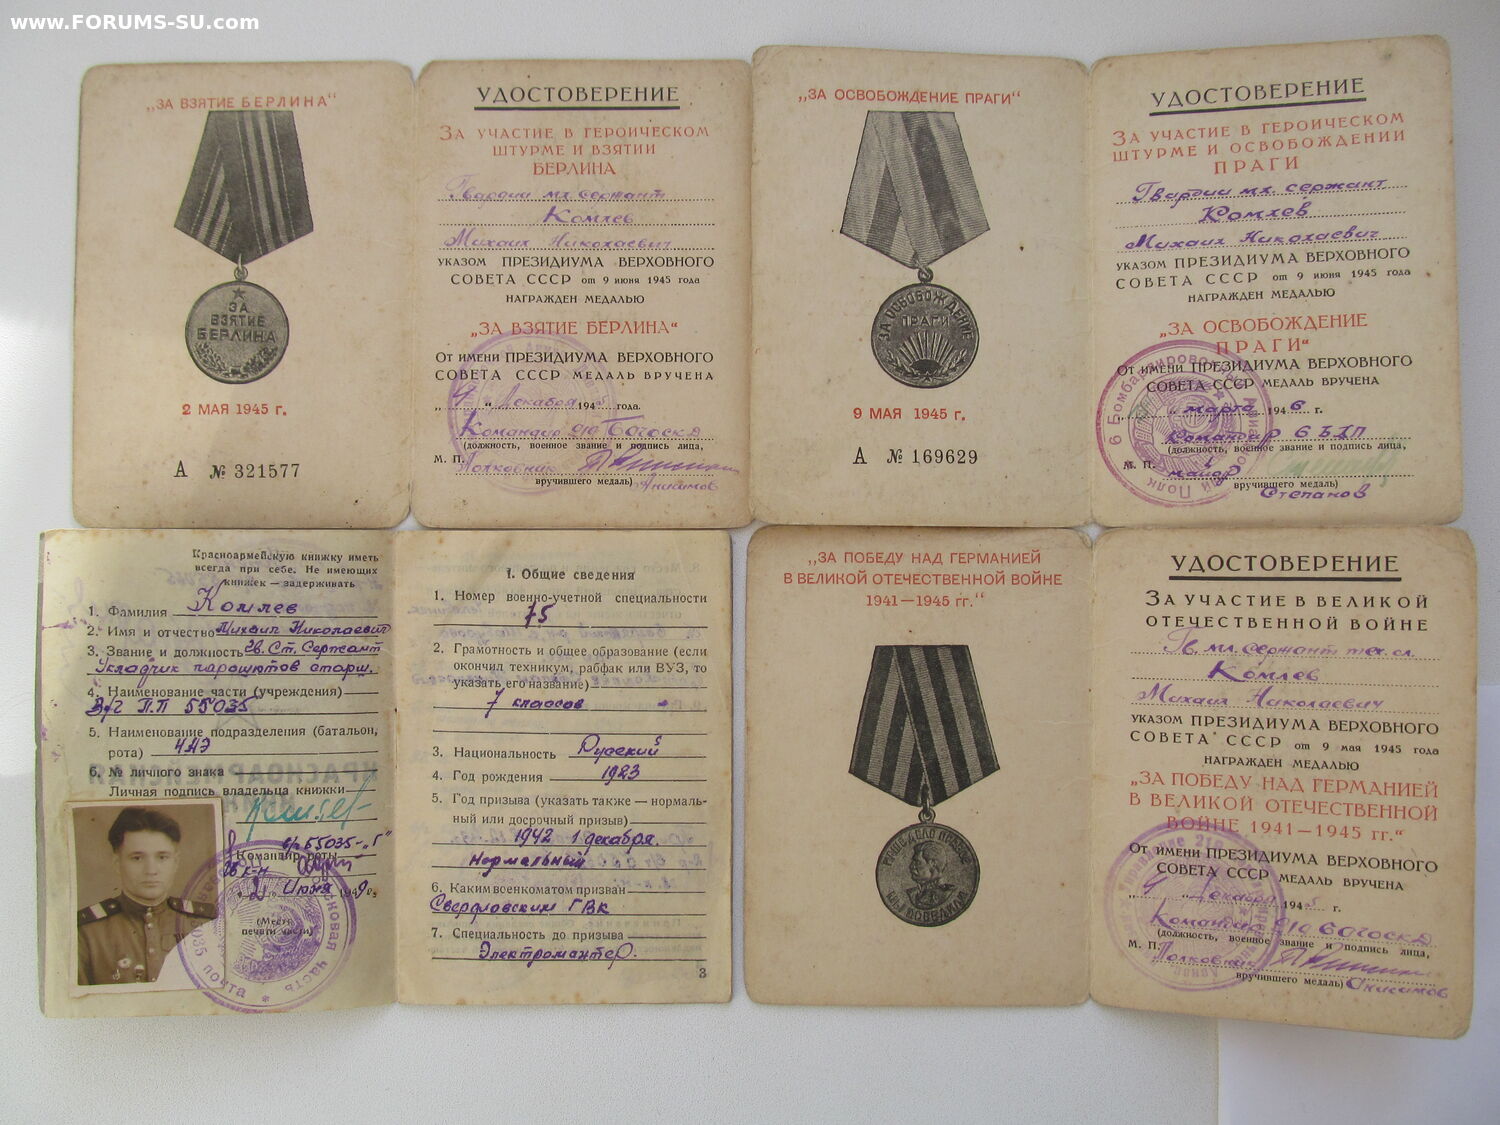 www.FORUMS-SU.com
„ЗА ВЗЯТИЕ БЕРЛИНА“
ЗА
ВЗЯТИЕ
БЕРЛИНА
2 МАЯ 1945 г.
А № 321577
УДОСТОВЕРЕНИЕ
ЗА УЧАСТИЕ В ГЕРОИЧЕСКОМ
ШТУРМЕ И ВЗЯТИИ
БЕРЛИНА
Гвардии мл. сержант
Комлев
Михаил Николаевич
УКАЗОМ ПРЕЗИДИУМА ВЕРХОВНОГО
СОВЕТА СССР от 9 июня 1945 года
НАГРАЖДЕН МЕДАЛЬЮ
„ЗА ВЗЯТИЕ БЕРЛИНА“
ОТ ИМЕНИ ПРЕЗИДИУМА ВЕРХОВНОГО
СОВЕТА СССР МЕДАЛЬ ВРУЧЕНА
„4“ Декабря 1945 года.
Командир
(должность, военное звание и подпись лица,
М. П. Полковник
вручившего медаль) Анисимов
„ЗА ОСВОБОЖДЕНИЕ ПРАГИ“
ЗА ОСВОБОЖДЕНИЕ
ПРАГИ
9 МАЯ 1945 г.
А № 169629
УДОСТОВЕРЕНИЕ
ЗА УЧАСТИЕ В ГЕРОИЧЕСКОМ
ШТУРМЕ И ОСВОБОЖДЕНИИ
ПРАГИ
Гвардии мл. сержант
Комлев
Михаил Николаевич
УКАЗОМ ПРЕЗИДИУМА ВЕРХОВНОГО
СОВЕТА СССР от 9 июня 1945 года
НАГРАЖДЕН МЕДАЛЬЮ
„ЗА ОСВОБОЖДЕНИЕ
ПРАГИ“
ОТ ИМЕНИ ПРЕЗИДИУМА ВЕРХОВНОГО
СОВЕТА СССР МЕДАЛЬ ВРУЧЕНА
марта 1946 г.
Командир 6
(должность, военное звание и подпись лица,
М. П. майор
вручившего медаль)
Степанов
Красноармейскую книжку иметь
всегда при себе. Не имеющих
книжек — задерживать
1. Фамилия Комлев
2. Имя и отчество Михаил Николаевич
3. Звание и должность Гв. Ст. Сержант
Укладчик парашютов старш.
4. Наименование части (учреждения)
В/Ч П.П 55035
5. Наименование подразделения (батальон,
рота) 4АЭ
6. № личного знака
Личная подпись владельца книжки
Комлев
Командир роты
„2“ Июня 1949 г.
(Место
печати части)
I. Общие сведения
1. Номер военно-учетной специальности
75
2. Грамотность и общее образование (если
окончил техникум, рабфак или ВУЗ, то
указать его название)
7 классов
3. Национальность Русский
4. Год рождения 1923
5. Год призыва (указать также — нормаль-
ный или досрочный призыв)
1942 1 декабря.
Нормальный
6. Каким военкоматом призван
Свердловским ГВК
7. Специальность до призыва
Электромонтер.
3
„ЗА ПОБЕДУ НАД ГЕРМАНИЕЙ
В ВЕЛИКОЙ ОТЕЧЕСТВЕННОЙ ВОЙНЕ
1941—1945 гг.“
НАШЕ ДЕЛО ПРАВОЕ
МЫ ПОБЕДИЛИ
УДОСТОВЕРЕНИЕ
ЗА УЧАСТИЕ В ВЕЛИКОЙ
ОТЕЧЕСТВЕННОЙ ВОЙНЕ
Гв. мл. сержант тех. сл.
Комлев
Михаил Николаевич
УКАЗОМ ПРЕЗИДИУМА ВЕРХОВНОГО
СОВЕТА СССР от 9 мая 1945 года
НАГРАЖДЕН МЕДАЛЬЮ
„ЗА ПОБЕДУ НАД ГЕРМАНИЕЙ
В ВЕЛИКОЙ ОТЕЧЕСТВЕННОЙ
ВОЙНЕ 1941—1945 гг.“
ОТ ИМЕНИ ПРЕЗИДИУМА ВЕРХОВНОГО
СОВЕТА СССР МЕДАЛЬ ВРУЧЕНА
„4“ Декабря 1945 г.
Командир
(должность, военное звание и подпись лица,
М. П. Полковник
вручившего медаль) Анисимов